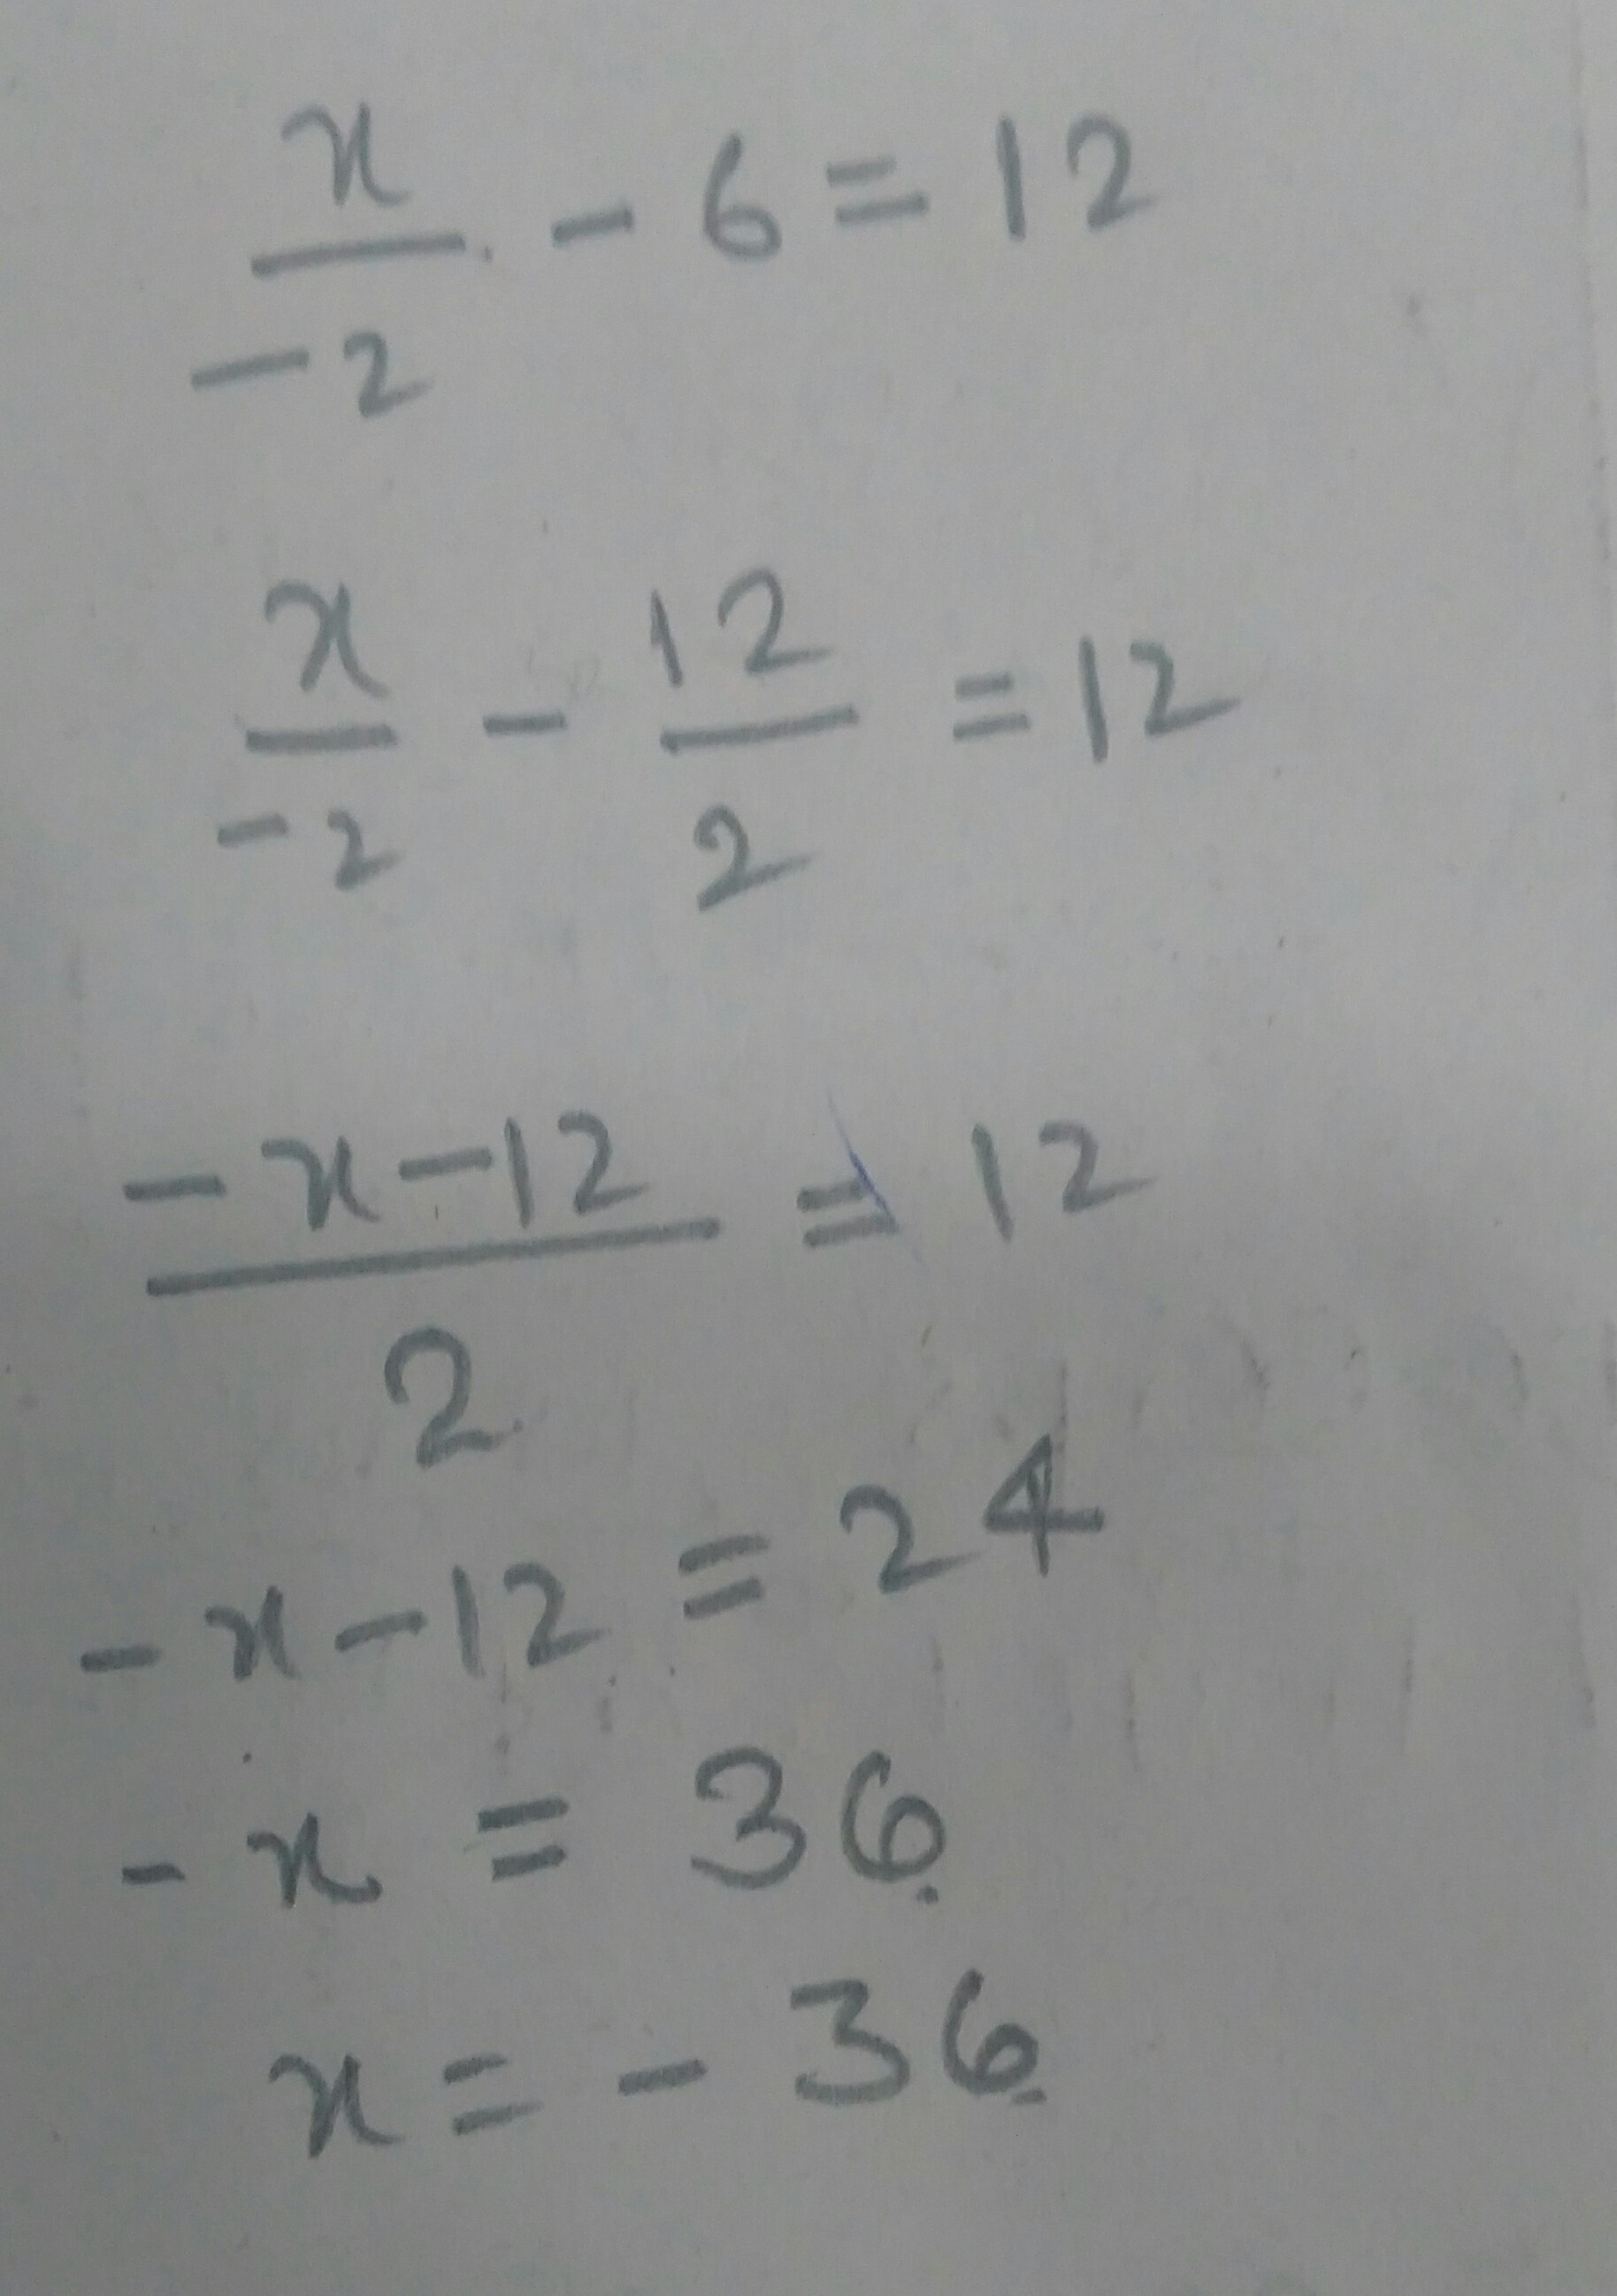 x/-2 - 6 = 12
x/-2 - 12/2 = 12
-x-12/2 = 12
-x-12 = 24
-x = 36
x = -36